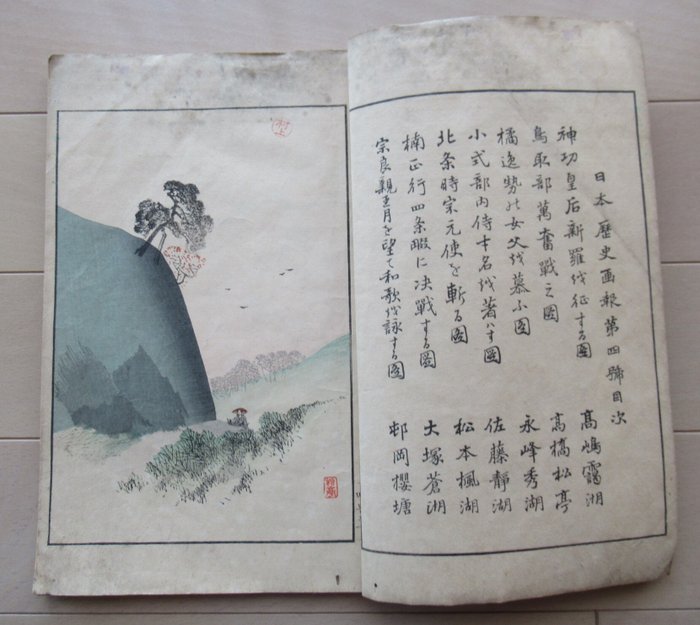 日本歴史画報第四號目次
神功皇后新羅を征する圖 高嶋靄湖
鳥取部萬奮戰之圖 高橋松亭
橘逸勢の女父を慕ふ圖 永峰秀湖
小式部内侍才名を著ハす圖 佐藤靜湖
北条時宗元使を斬る圖 松本楓湖
楠正行四条畷に决戰する圖 大塚蒼湖
宗良親王月を望て和歌を詠する圖 邨岡櫻塘
村上